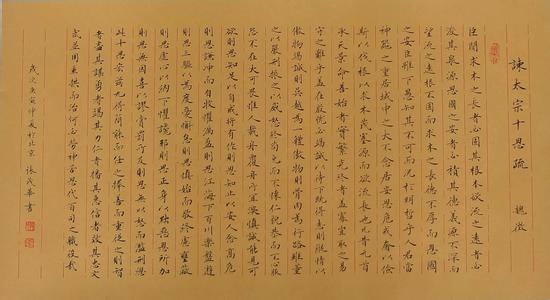 諫太宗十思疏 魏徵
臣聞求木之長者必固其根木欲流之遠者必
浚其泉源思國之安者必積其德義源不深而
望流之遠根不固而求木之長德不厚而思國
之安臣雖下愚知其不可而況於明哲乎人君當
神器之重居域中之大不念居安思危戒奢以儉
斯以伐根以求木茂塞源而欲流長也凡昔元首
承天景命善始者實繁克終者蓋寡豈取之易
守之難乎蓋在殷憂必竭誠以待下既得志則縱情以
傲物竭誠則吳越為一體傲物則骨肉為行路雖董
之以嚴刑振之以威怒終苟免而不懷仁貌恭而不心服
怨不在大可畏惟人載舟覆舟所宜深慎誠能見可
欲則思知足以自戒將有作則思知止以安人念高危
則思謙沖而自牧懼滿盈則思江海下百川樂盤遊
則思三驅以為度憂懈怠則思慎始而敬終慮壅蔽
則思虛心以納下懼讒邪則思正身以黜惡恩所加
則思無因喜以謬賞罰所及則思無以怒而濫刑總
此十思宏茲九得簡能而任之擇善而從之則智
者盡其謀勇者竭其力仁者播其惠信者效其忠文
武並用垂拱而治何必勞神苦思代百司之職役哉
仲夏於北京 張茂華書